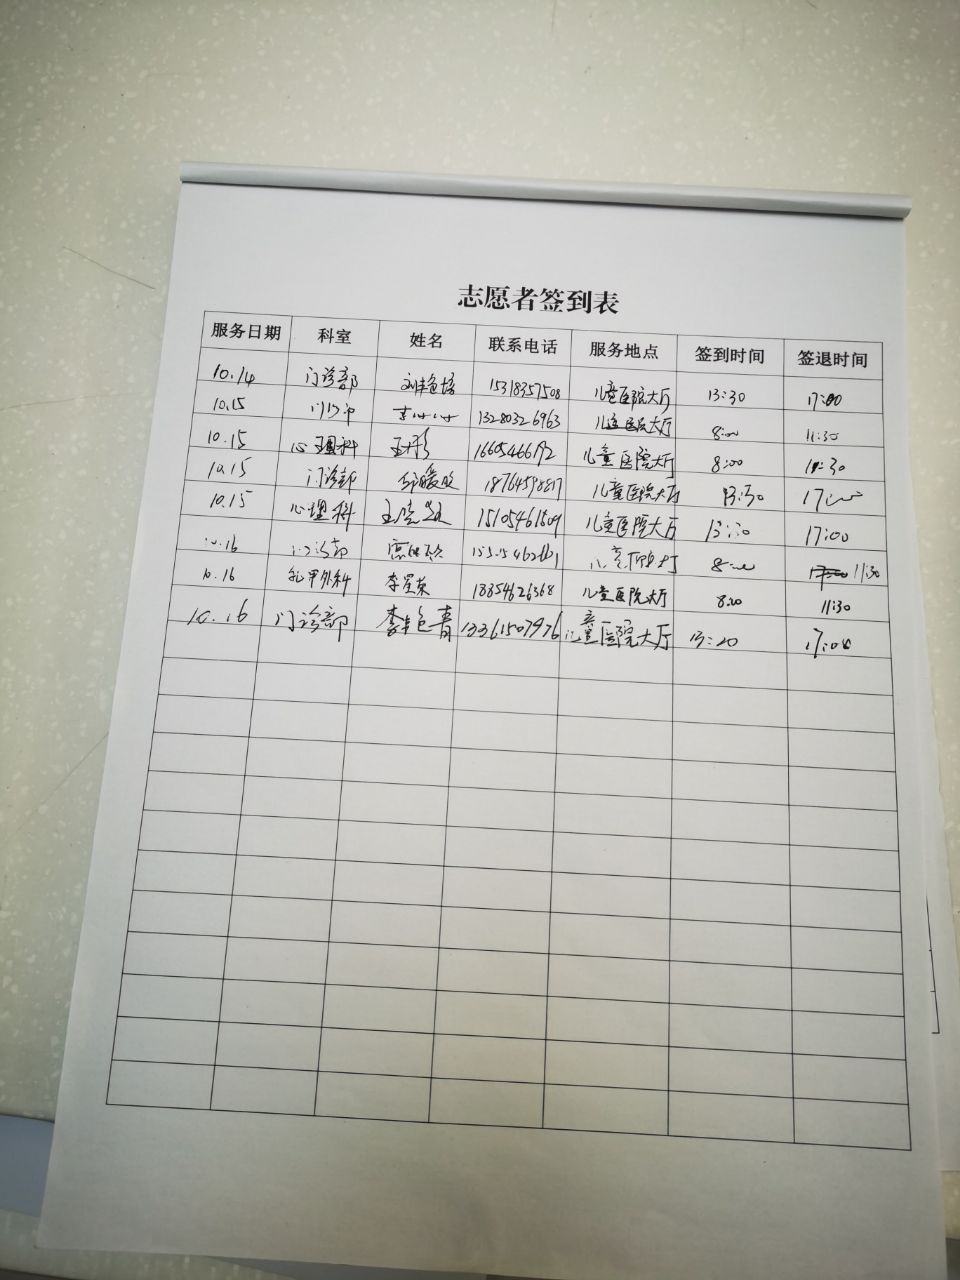 志愿者签到表
服务日期 科室 姓名 联系电话 服务地点 签到时间 签退时间
10.14 门诊部 15318357508 儿童医院大厅 13:30 17:00
10.15 门诊部 13280326963 儿童医院大厅 8:00 11:30
10.15 心理科 王彤 16605466192 儿童医院大厅 8:00 11:30
10.15 门诊部 18764598817 儿童医院大厅 13:30 17:00
10.15 心理科 15105461509 儿童医院大厅 13:30 17:00
10.16 门诊部 8:00 11:30
10.16 乳甲外科 李星荣 18854626368 儿童医院大厅 8:00 11:30
10.16 门诊部 13361507976 儿童医院大厅 17:00